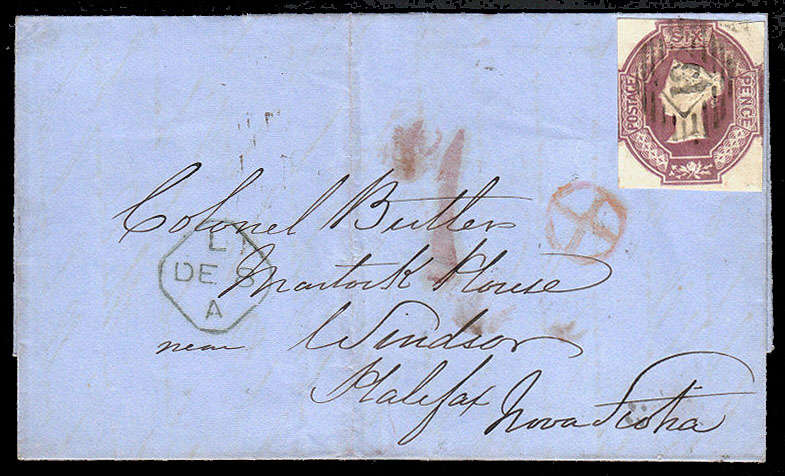 SIX
POSTAGE
PENCE
Colonel Butler
L
DE 8
A
Martock House
near Windsor
Halifax Nova Scotia